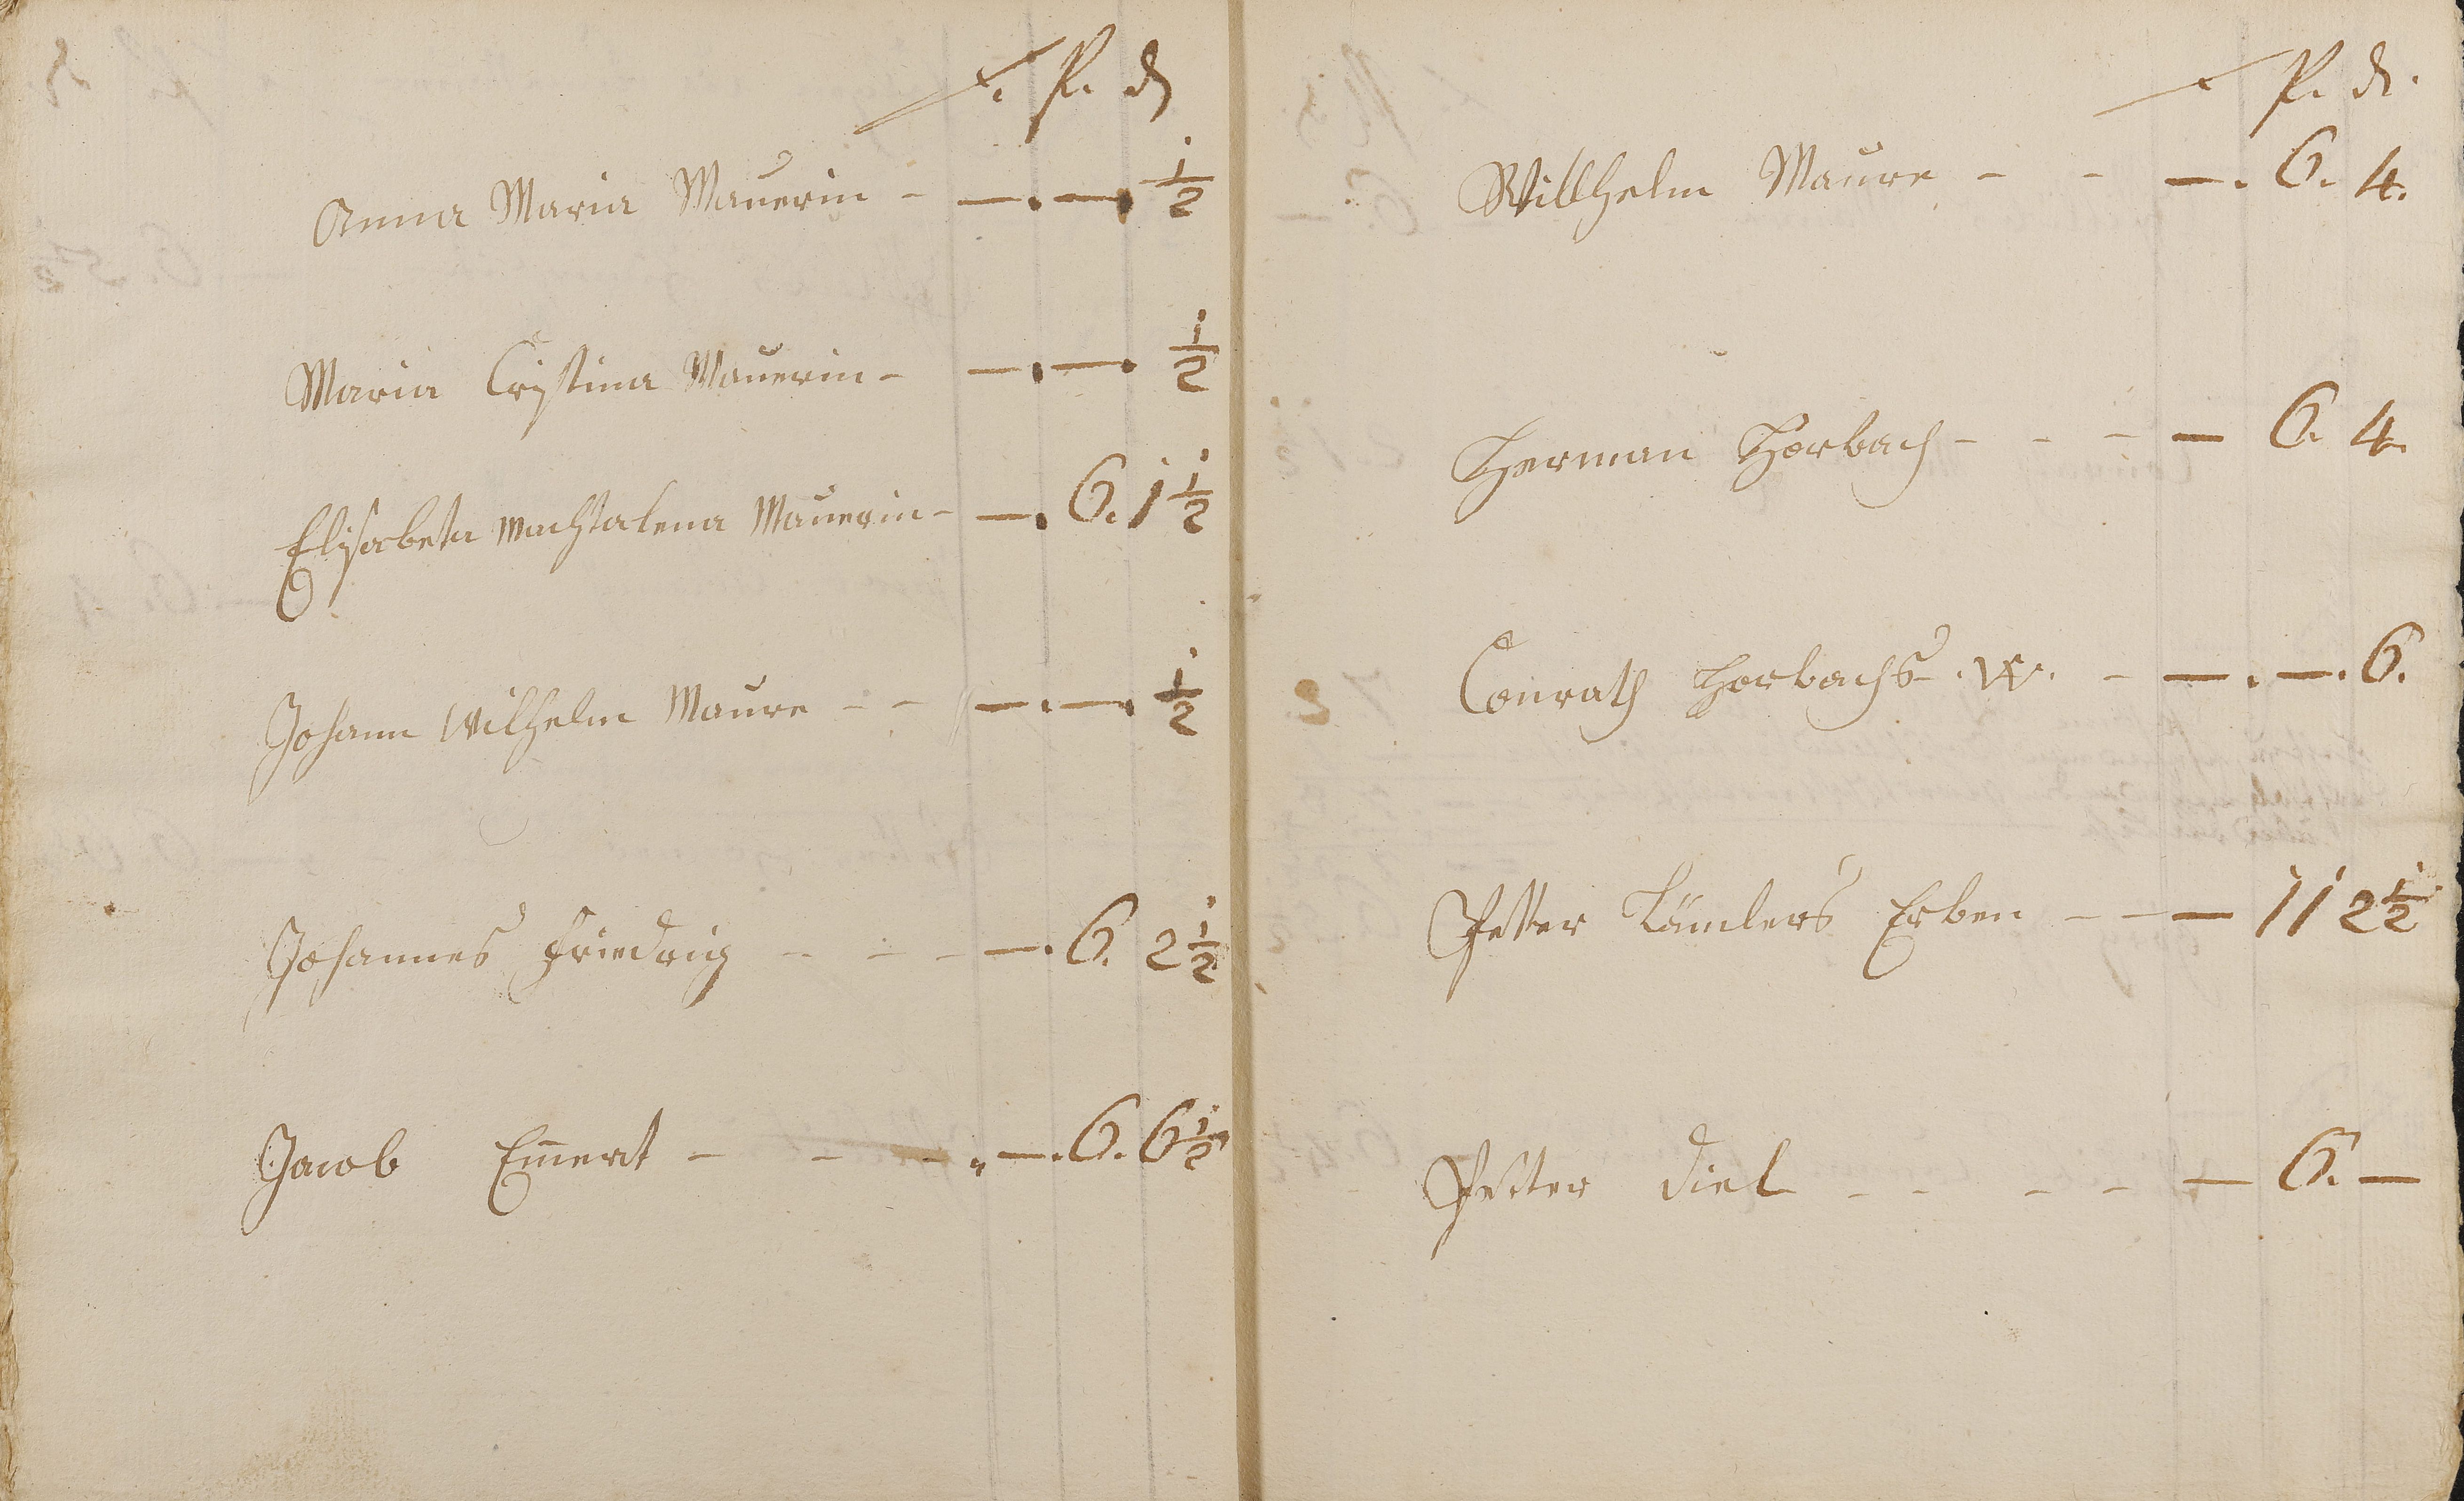 f. P. d
Anna Maria Mauerin - —. —. ½
Maria Cristina Mauerin - —. —. ½
Elisabeta Machtalena Mauerin - —. 6. 1½
Johann Wilhelm Maure - - —. —. ½
Johannes Friedrig - - - —. 6. 2½
Jacob Em̄ert - - - —. 6. 6½
f. P. d.
Willhelm Maure - - —. 6. 4.
Herman Horbach - - - — 6. 4.
Conrath Horbachs . W. - —. —. 6.
Petter Erben - - — 11 2½
Petter Diel - - - - — 6. —